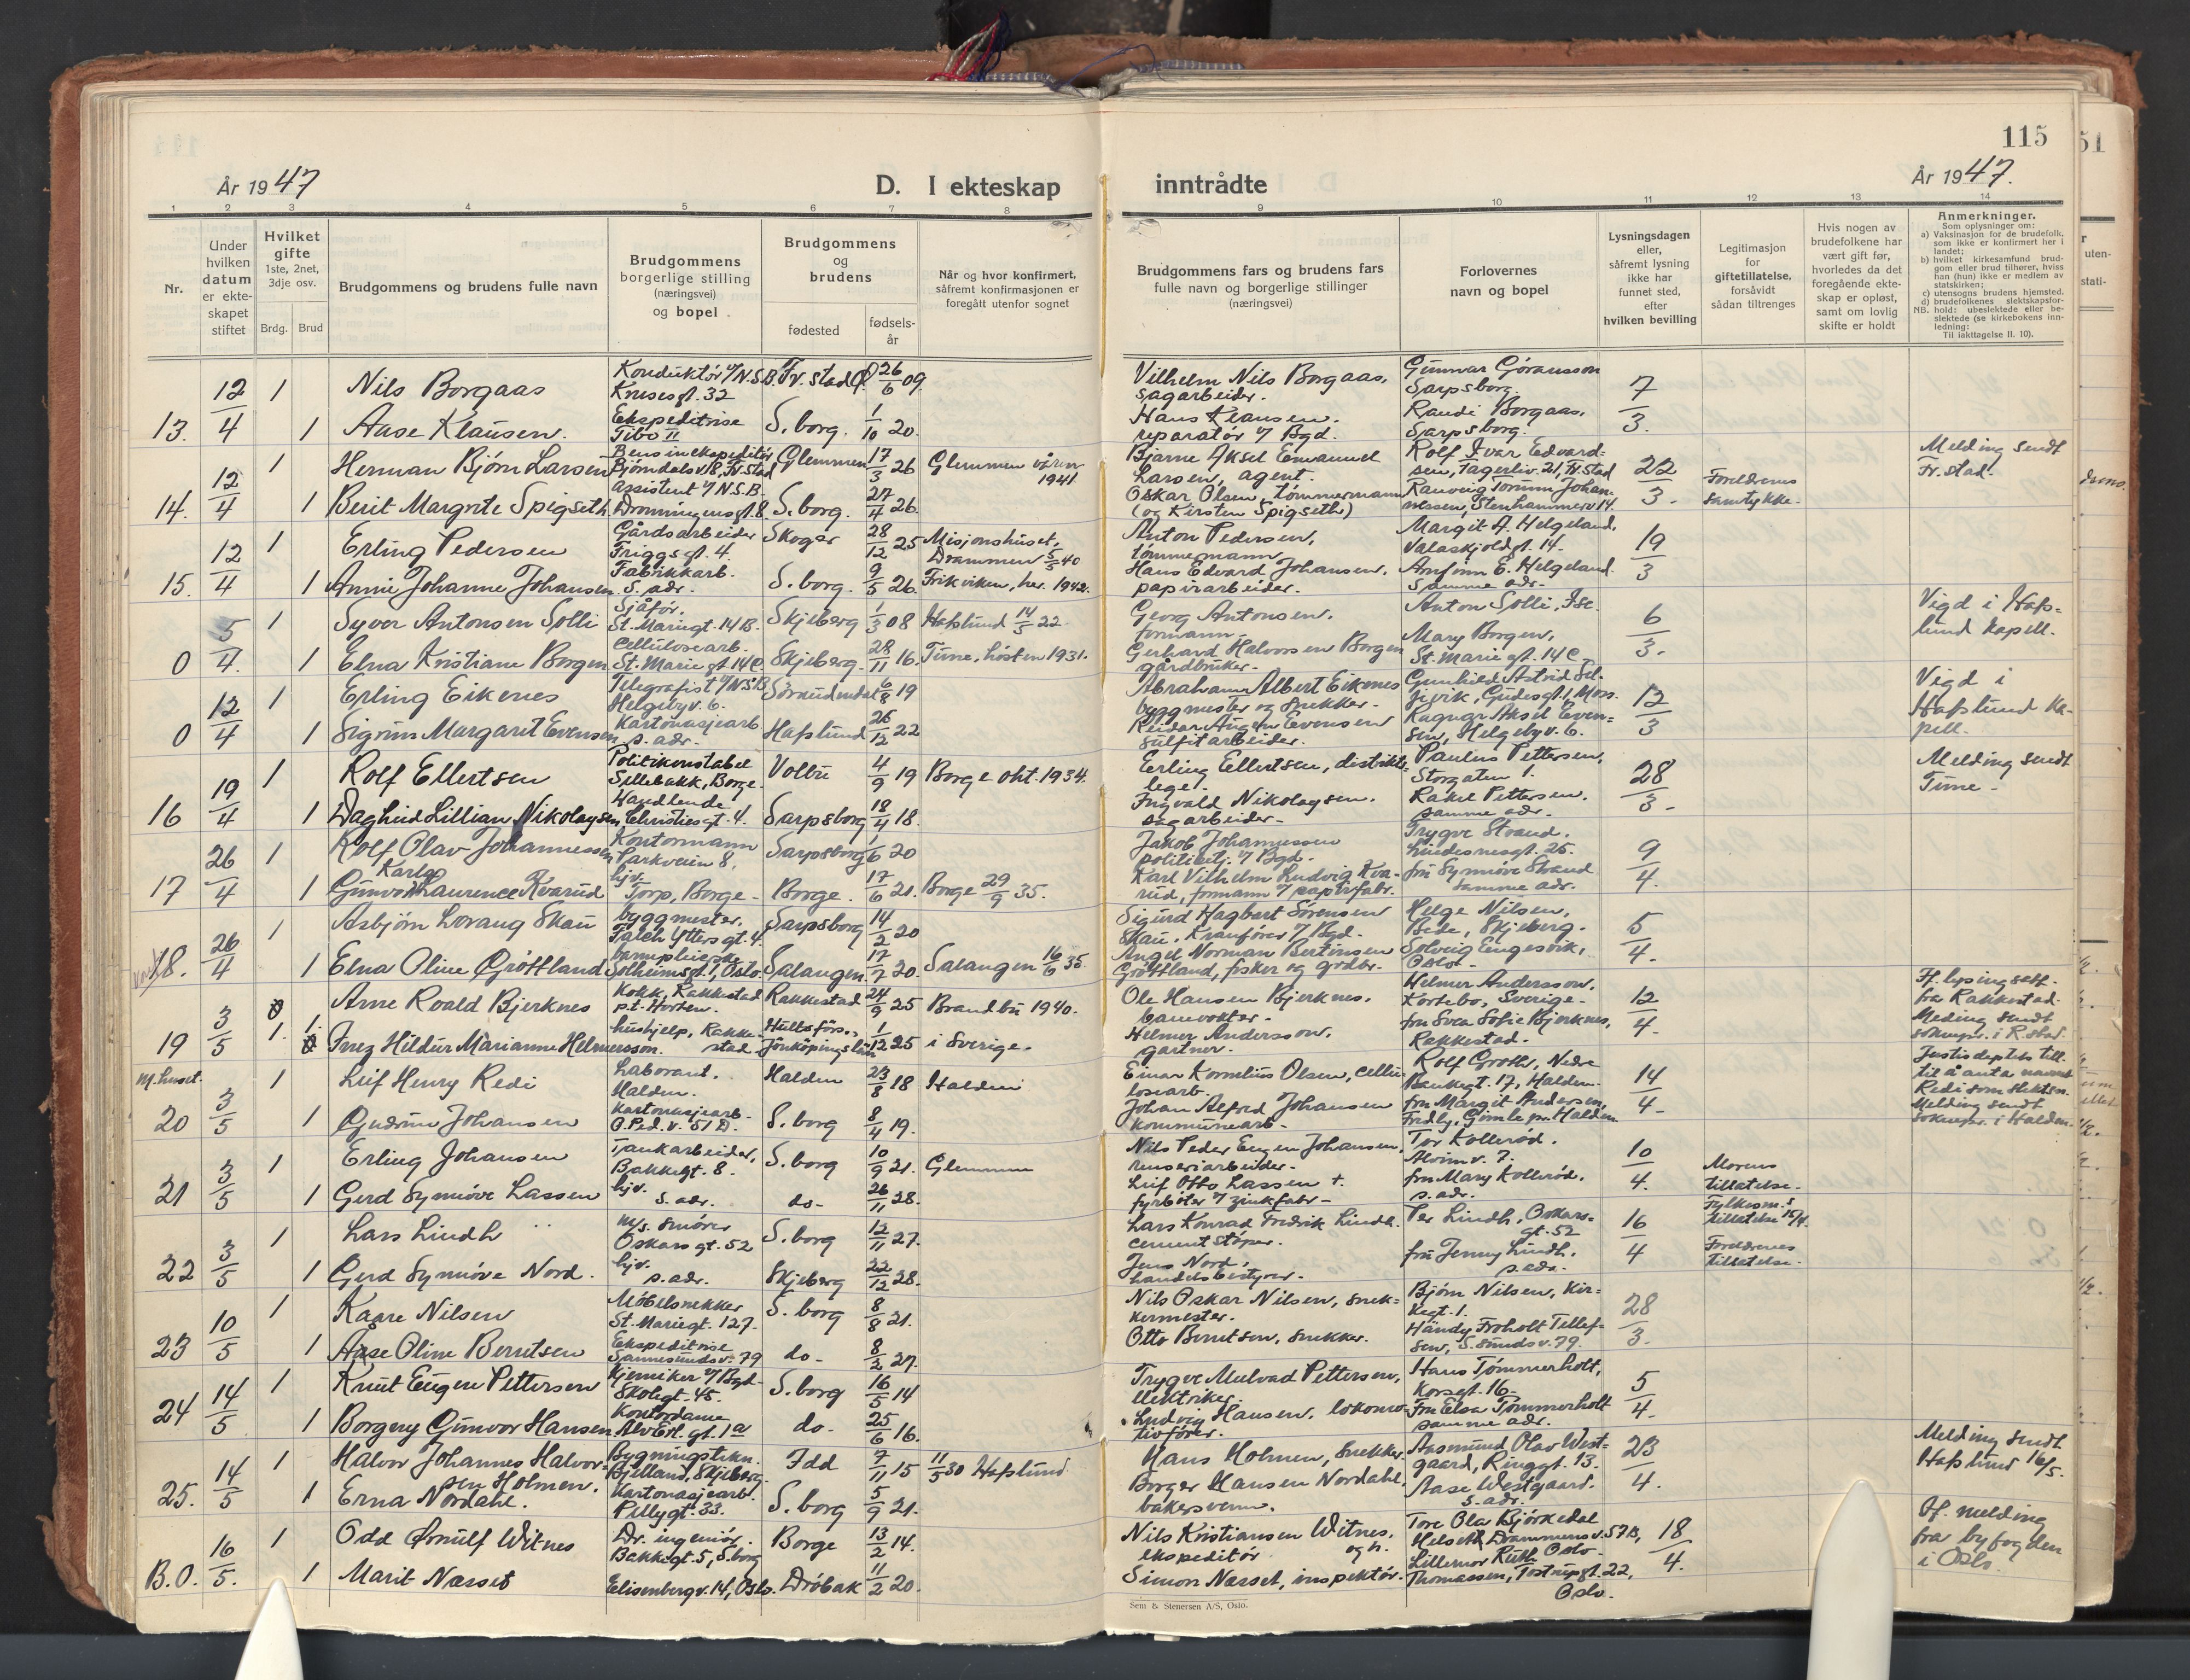 115
År 1947
D. I ekteskap inntrådte
År 1947.
1 2 3 4 5 6 7 8 9 10 11 12 13 14
Nr.
Under hvilken datum er ekteskapet stiftet
Hvilket gifte 1ste, 2net, 3dje osv.
Brdg. Brud
Brudgommens og brudens fulle navn
Brudgommens borgerlige stilling (næringsvei) og bopel
Brudgommens og brudens
fødested
fødselsår
Når og hvor konfirmert, såfremt konfirmasjonen er foregått utenfor sognet
Brudgommens fars og brudens fars fulle navn og borgerlige stillinger (næringsvei)
Forlovernes navn og bopel
Lysningsdagen eller, såfremt lysning ikke har funnet sted, efter hvilken bevilling
Legitimasjon for giftetillatelse, forsåvidt sådan tiltrenges
Hvis nogen av brudefolkene har vært gift før, hvorledes da det foregående ekteskap er opløst, samt om lovlig skifte er holdt
Anmerkninger.
Som oplysninger om:
a) Vaksinasjon for de brudefolk, som ikke er konfirmert her i landet;
b) hvilket kirkesamfund brudgom eller brud tilhører, hviss han (hun) ikke er medlem av statskirken;
c) utensogns brudens hjemsted.
d) brudefolkenes slektskapsforhold: ubeslektede eller beslektede (se kirkebokens innledning:
NB.
Til iakttagelse II. 10).
13. 12/4 1 Nils Borgaas Konduktør v/N.S.B. Kruses gt. 32 Fr. stad 26/6 09 Vilhelm Nils Borgaas, sagarbeider. Gunnar Göransson Sarpsborg. 7/3.
1 Aase Klausen. Ekspeditrise Tibo II S. borg. 1/10 20. Hans Klausen. reparatør v/ Bgd. Randi Borgaas, Sarpsborg.
14. 12/4 1 Herman Bjørn Larsen Bensinekspeditør Bjørndalsv. 18, Fr. stad Glemmen 17/3 26 Glemmen våren 1941. Bjarne Aksel Emanuel Larsen, agent. Rolf Ivar Edvardsen, Fagerliv. 21, Fr. stad 22/3. Foreldrenes samtykke. Melding sendt Fr. stad.
1 Berit Margrete Spigseth. Assistent v/N.S.B. Dronningens gt. 8. S. borg. 27/4 26. Oskar Olsen, tømmermann (og Kirsten Spigseth) Ranveig Torunn Johannessen, Stenhammerv. 14.
15. 12/4 1 Erling Pedersen Gårdsarbeider Friggs gt. 4. Skoger 28/12 25 Misjonshuset, Drammen 5/5 40 Anton Pedersen, tømmermann Margit A. Helgeland, Valaskjoldgt. 14. 19/3
1 Annie Johanne Johansen Fabrikkarb. S. adr. S. borg. 9/5 26. Frikirken, her. 1942. Hans Edvard Johansen, papirarbeider. Arnfinn E. Helgeland. Samme adr.
0 5/4. 1 Syver Antonsen Solli Sjåfør. St. Mariegt. 14 B. Skjeberg 1/3 08 Hafslund 14/5 22. Georg Antonsen, formann. Anton Solli, Ise. 6/3. Vigd i Hafslund kapell.
1 Elna Kristiane Borgen Cellulosearb. St. Marie gt. 14 C. Skjeberg. 28/11 16. Tune, høsten 1931. Gerhard Halvorsen Borgen gårdbruker. Mary Borgen, St. Marie gt. 14 C.
0 12/4 1 Erling Eikenes Telegrafist v/N.S.B. Helgebyv. 6. 6/8 19 Abraham Albert Eikenes byggmester og snekker. 12/3 Vigd i Hafslund kapell.
1 Sigrun Margaret Evensen Kartonasjearb s. adr. Hafslund 26/12 22 Reidar August Evensen sulfitarbeider. Ragnar Aksel Evensen, Helgebyv. 6.
16 19/4 1 Rolf Ellertsen Politikonstabel Sellebakk, Borge. Volbu 4/9 19 Borge okt. 1934. Erling Ellertsen, distriktslege. Paulus Pettersen, Storgaten 1. 28/3. Melding sendt Tune.
1 Daghild Lillian Nikolaysen Handlende Christiesgt. 4. Sarpsborg 18/4 18. Ingvald Nikolaysen. sagarbeider. Rakel Pettersen. samme adr.
17 26/4 1 Rolf Olav Johannessen Kontormann Parkveien 8. Sarpsborg 1/6 20 Jakob Johannessen politibetj. v/ Bgd. Trygve Strand. Lindesnesgt. 25. 9/4.
1 Gunvor Karla Laurence Kvarud hjv. Torp, Borge Borge. 17/6 21. Borge 29/9 35. Karl Vilhelm Ludvig Kvarud, formann v/ papirfabr. fru Synnøve Strand samme adr.
18. 26/4 1 Asbjørn Lorang Skau byggmester. Falch Ytters gt. 4. Sarpsborg 14/2 20 Sigurd Hagbart Sørensen Skau, Kranfører v/ Bgd. Helge Nilsen, Bede, Skjeberg. 5/4.
1 Elna Oline Grøttland barnepleierske Solheimsgt. 1, Oslo. Salangen. 17/7 20. Salangen 16/6 35. Angel Norman Bertinsen Grøttland, fisker og grdbr. Solveig Engesvik, Oslo.
19 3/5 1. Arne Roald Bjerknes Kokk, Rakkestad p.t. Horten. Rakkestad 24/9 25 Brandbu 1940. Ole Hansen Bjerknes. banevokter. Helmer Andersson, Kortebo, Sverige. 12/4. If. lysingsatt. fra Rakkestad. Melding sendt sokneprr. i R.stad.
1. Inez Hildur Marianne Helmersson. hushjelp, Rakkestad Hultsførs, Jönköpings län 1/12 25 i Sverige. Helmer Andersson, gartner. fru Svea Sofie Bjerknes, Rakkestad.
M. huset.
20 3/5 1 Leif Henry Redi Laborant. Halden. Halden 23/8 18 Halden Einar Kornelius Olsen, cellulosearb. Rolf Groth, Nedre Bankegt. 17, Halden. 14/4. Justisdeptets till. til å anta navnet Redi som slektsn. Melding sendt sokneprr. i Halden.
1 Gudrun Johansen Kartonasjearb. O. Ped. v. 51 D. S. borg 8/4 19. Johan Alfred Johansen kommunearb. fru Margit Andersen, Fredly, Gimle pr. Halden.
21 3/5 1 Erling Johansen Tankarbeider. Bakkegt. 8. S. borg 10/9 21. Glemmen Nils Peder Eugen Johansen, renseriarbeider. Tor Kollerød. Alvimv. 7. 10/4. Morens tillatelse.
1 Gerd Synnøve Lassen hjv. s. adr. do. 26/11 28. Leif Otto Lassen †. fyrbøter v/ zinkfabr. fru Mary Kollerød. s. adr. Fylkesm.s tillatelse 15/4.
22 3/5 1 Lars Lindh m/s. smører Oskars gt. 52 S. borg 12/11 27. Lars Konrad Fredrik Lindh. cementstøper. Per Lindh, Oskarsgt. 52 16/4
1 Gerd Synnøve Nord. hjv. s. adr. Skjeberg 22/12 28. Jens Nord, handelsbestyrer. fru Jenny Lindh. s. adr. Foreldrenes tillatelse.
23 10/5 1 Kaare Nilsen Møbelsnekker St. Mariegt. 127. S. borg 8/8 21. Nils Oskar Nilsen, snekkermester. Bjørn Nilsen, Kirkegt. 1. 28/3.
1 Aase Oline Berntsen Ekspeditrise Sannesundsv. 79 do. 8/2 27. Otto Berntsen, snekker. Händy Froholt Tellefsen, S.sundsv. 79.
24 14/5 1 Knut Eugen Pettersen Kjemiker v/ Bgd. Skolegt. 45. S. borg 16/5 14 Trygve Mulvad Pettersen, elektriker. Hans Tømmerholt, Korsgt. 16. 5/4.
1 Borgny Gunvor Hansen Kontordame Alv Erl. gt. 1a do. 25/6 16. Ludvig Hansen. lokomotivfører. Fru Elsa Tømmerholt samme adr.
25. 14/5 1 Halvor Johannes Halvorsen Holmen. Bygningstekn. Bjelland, Skjeberg. Idd 7/11 15 11/5 30 Hafslund Hans Holmen, snekker. Aasmund Olav Westgaard, Ringgt. 13. 23/4. Melding sendt Hafslund 16/5.
1 Erna Nordahl. Kartonasjearb. Pellygt. 33. S. borg 5/9 21. Borger Hansen Nordahl, bakersvenn. Aase Westgaard. s. adr.
B.O. 16/5. 1 Odd Ørnulf Witnes Dr. ingeniør. Bakkegt. 5, S. borg Borge 13/2 14. Nils Kristiansen Witnes, ekspeditør Tore Ola Bjørkedal Helseth, Drammensv. 57B, Oslo. 18/4. If. melding fra byfogden i Oslo.
1 Marit Næsset Elisenbergv. 14, Oslo. Drøbak 11/2 20. Simon Næsset, inspektør. Lillemor Ruth Thomassen, Tostrupgt. 22, Oslo.
Sem & Stenersen A/S, Oslo.